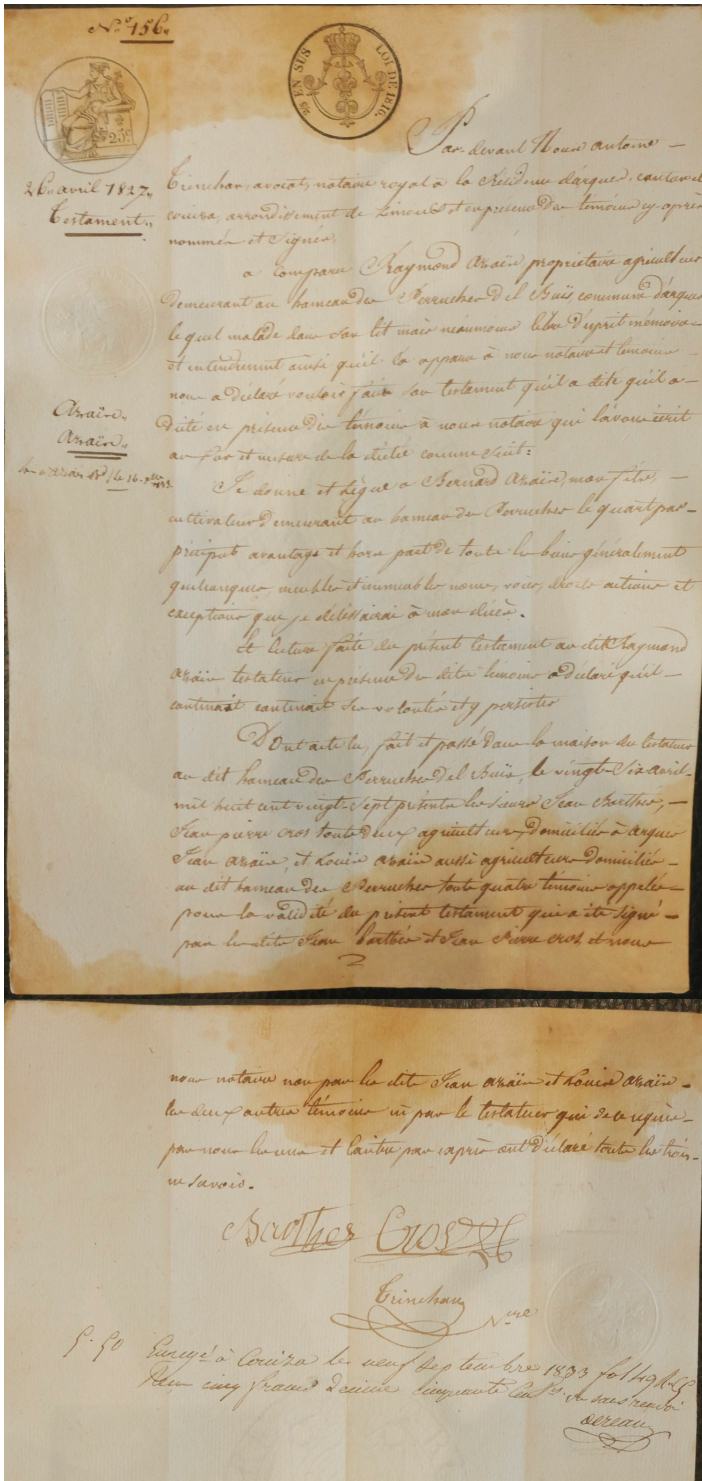 N.° 156.
25 EN SUS
LOI DE 1816.
25c.
Par-devant Nous antoine
26 avril 1827.
Testament.
Trinchan, avocat, notaire royal à la Résidence d'arques, canton de
couiza, arrondissement de Limoux et en présence des témoins cy-après
nommés et signés,
a comparu Raymond araïn propriétaire agriculteur
demeurant au hameau des Perruches del Buïs commune d'arques
le quel malade dans son lit mais néanmoins libre d'esprit mémoire
et entendement ainsi qu'il a apparu à nous notaire et témoins
nous a déclaré vouloir faire son testament qu'il a dité qu'il a
dicté en présence des témoins à nous notaire qui l'avons écrit
au fur et mesure de la dictée comme suit:
Araïn.
Araïn.
Je donne et Lègue a Bernard araïn, mon fils,
cultivateur demeurant au hameau des Perruches le quart par
préciput avantage et hors part de toute les biens généralement
quelconques, meubles et immeubles noms, voies, droits actions et
exceptions que je délaissairai à mon décès.
Et lecture faite du présent testament au dit Raymond
araïn testateur en présence des dits témoins a déclaré qu'il
contenait ses volontés et y persister
Dont acte lu, fait et passé dans la maison du testateur
au dit hameau des Perruches del Buïs, le vingt-six avril
mil huit cent vingt-sept présents les sieurs Jean Barthés,
Jean pierre cros toute deux agriculteurs, domiciliés à arques
Jean araïn, et Louis araïn aussi agriculteurs domiciliés
au dit hameau des Perruches toute quatre témoins appelés
pour la validité du présent testament qui a été signé
par les dits Jean barthés et Jean Pierre cros et nous
2
nous notaire non par les dits Jean araïn et Louis araïn
les deux autres témoins ni par le testateur qui de ce requis
par nous les uns et l'autre par exprès ont déclaré toute les trois
ne savoir.
Barthes Cros
Trinchan
N.re
5.50 Enreg.é à Couiza le neuf septembre 1833 fol 49
Reçu cinq francs decime cinquante cen.es sans renvoi